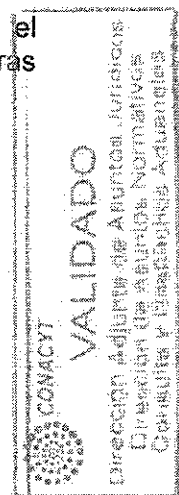 el
ras
CONACYT
VALIDADO
Dirección Adjunta de Asuntos Jurídicos
Dirección de Asuntos Normativos
Consulta y